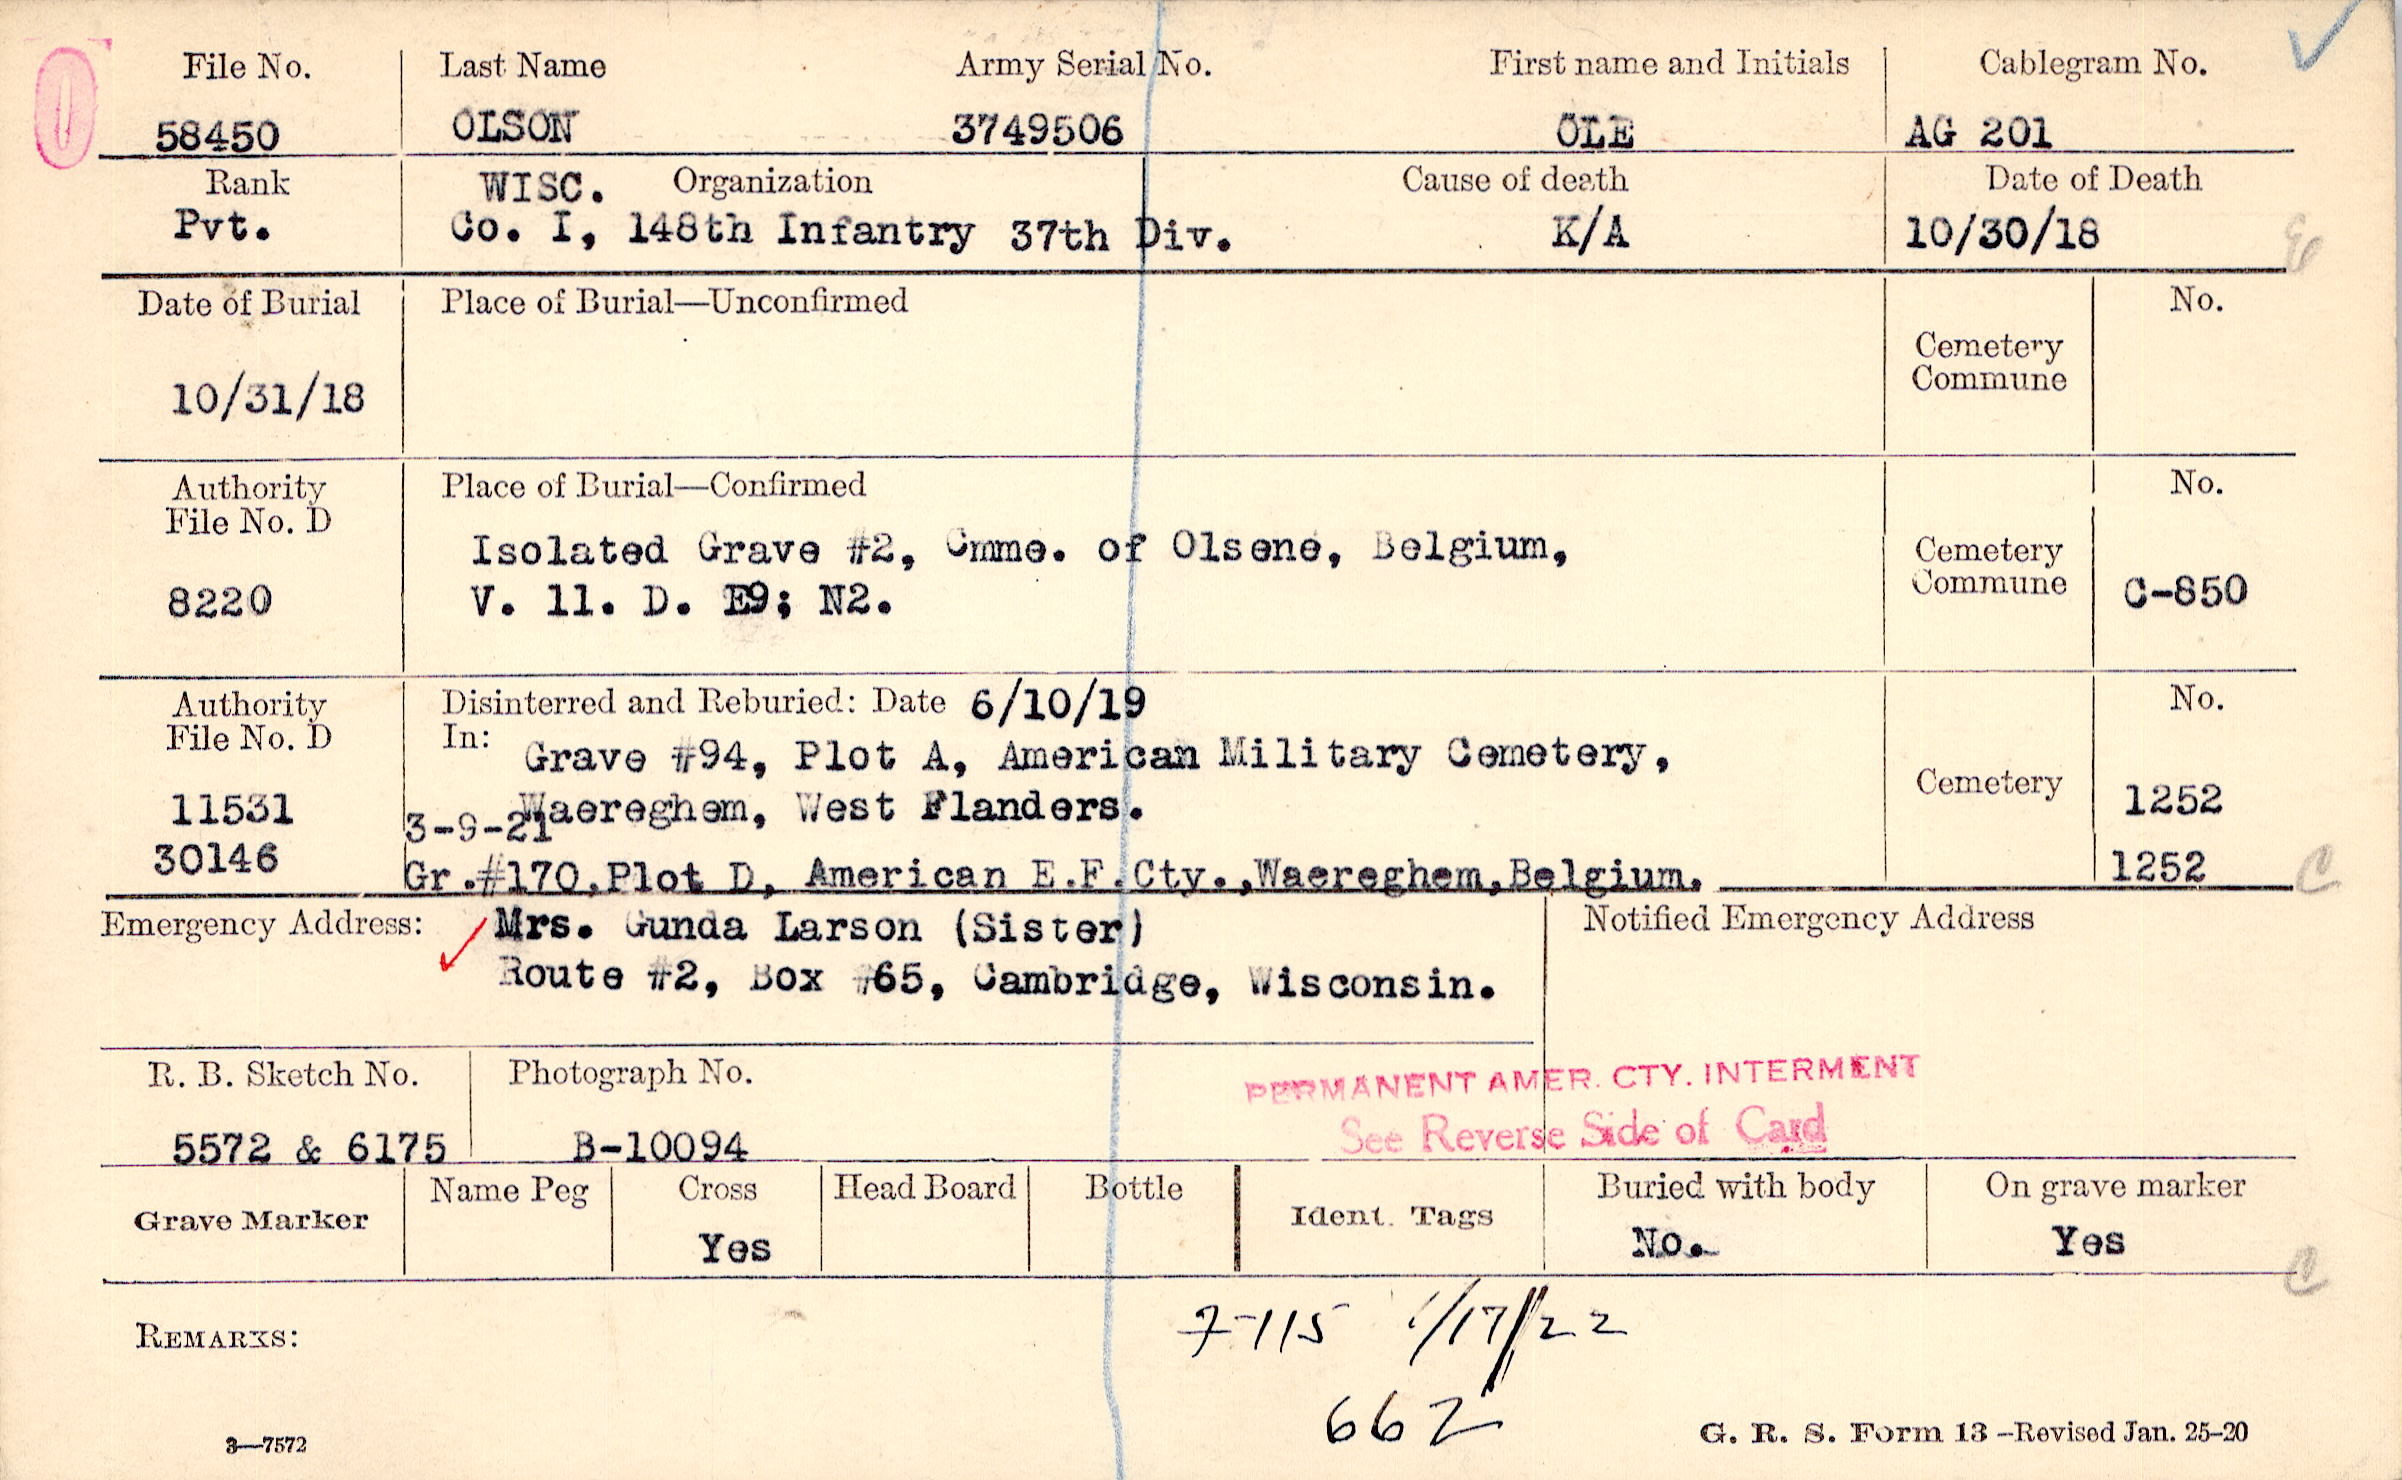 File No. Last Name Army Serial No. First name and Initials Cablegram No.
58450 OLSON 3749506 OLE AG 201
Rank WISC. Organization Cause of death Date of Death
Pvt. Co. I, 148th Infantry 37th Div. K/A 10/30/18
Date of Burial Place of Burial—Unconfirmed No.
Cemetery
Commune
10/31/18
Authority Place of Burial—Confirmed No.
File No. D
Isolated Grave #2, Cmme. of Olsene, Belgium, Cemetery
8220 V. 11. D. E9; N2. Commune C-850
Authority Disinterred and Reburied: Date 6/10/19 No.
File No. D In: Grave #94, Plot A, American Military Cemetery,
Cemetery
11531 Waereghem, West Flanders. 1252
3-9-21
30146 Gr.#170,Plot D, American E.F.Cty.,Waereghem,Belgium. 1252
Emergency Address: Mrs. Gunda Larson (Sister) Notified Emergency Address
Route #2, Box #65, Cambridge, Wisconsin.
R. B. Sketch No. Photograph No. PERMANENT AMER. CTY. INTERMENT
5572 & 6175 B-10094 See Reverse Side of Card
Name Peg Cross Head Board Bottle Buried with body On grave marker
Grave Marker Ident. Tags
Yes No. Yes
7-115 1/17/22
REMARKS:
662
3—7572 G. R. S. Form 13—Revised Jan. 25-20